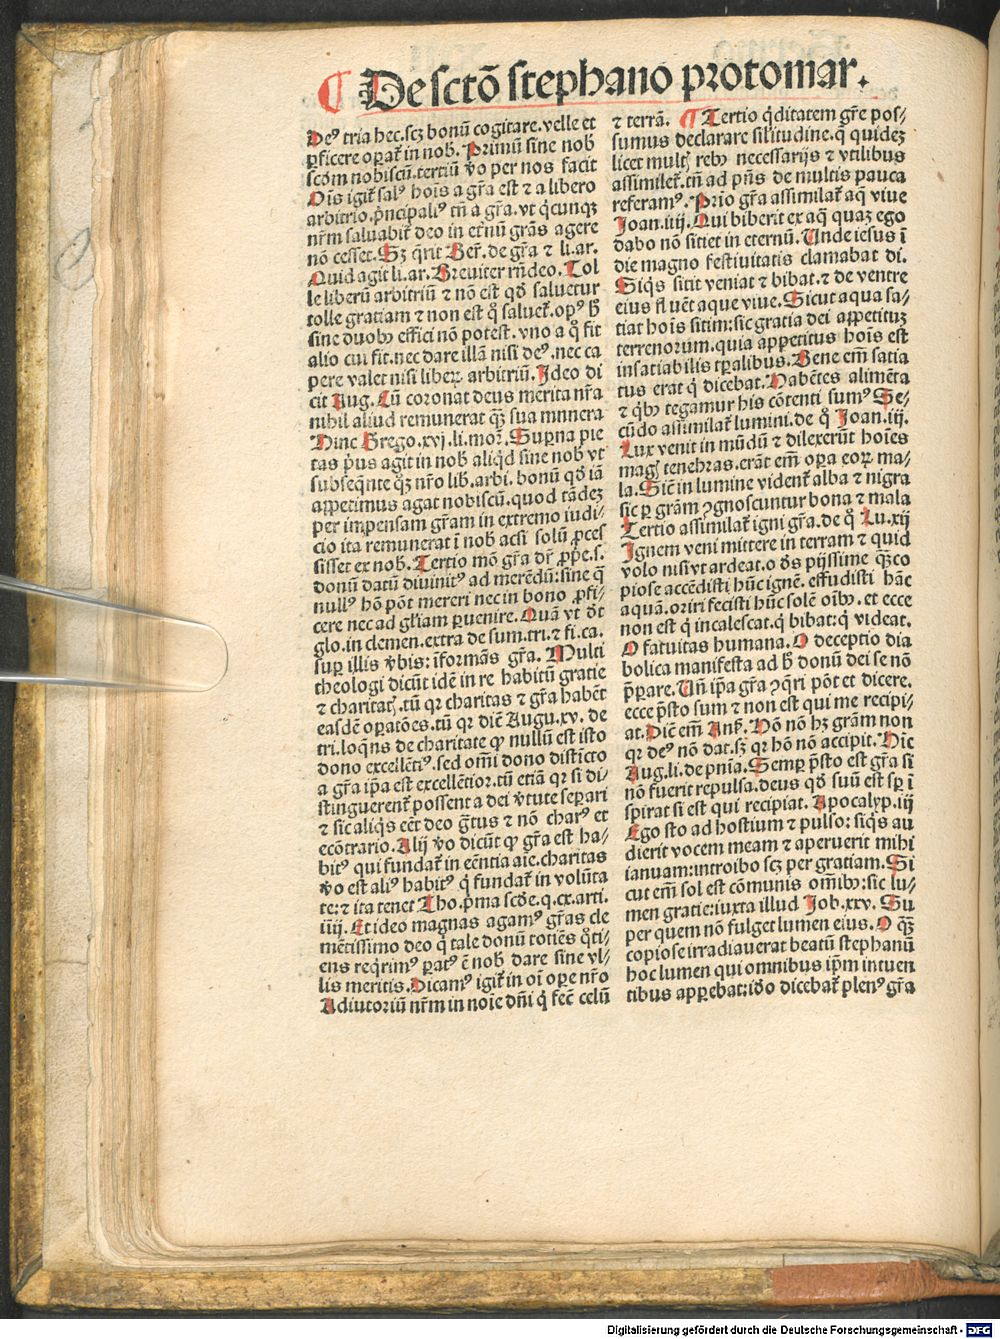 ¶ De sctō stephano protomar.
Deꝰ tria hec.scꝫ bonū cogitare.velle et
ꝑficere operat̄ in nob̄. Primū sine nob̄
scd̄m nobiscū.tertiū v̄o per nos facit
Oīs igit̄ salꝰ hoīs a gr̄a est ⁊ a libero
arbitrio.p̄ncipaliꝰ tn̄ a gr̄a.vt q̇cunqꝫ
nr̄m saluabit̄ deo in et̄nū grās agere
nō cesset.Sꝫ q̄rit Ber̄.de gr̄a ⁊ li.ar.
Quid agit li.ar.Breuiter rn̄deo.Tol
le liberū arbitriū ⁊ nō est qd̄ saluetur
tolle gratiam ⁊ non est q̊ saluet̄.opꝰ h̄
sine duobꝫ effici nō potest.vno a q̊ fit
alio cui fit.nec dare illā nisi deꝰ.nec ca
pere valet nisi liberꝝ arbitriū.Ideo di
cit Aug.Cū coronat deus merita nr̄a
nihil aliud remunerat qꝫ̄ sua munera
Hinc Grego.xvj.li.mor̄.Superna pie
tas pͥus agit in nob̄ aliqd̄ sine nob̄ vt
subseq̄nte qꝫ nr̄o lib̄.arbi.bonū qd̄ iā
appetimus agat nobiscū.quod tādeꝫ
per impensam gr̄am in extremo iudi⸗
cio ita remunerat ī nob̄ acsi solū ꝓces
sisset ex nob̄.Tertio mō gr̄a dr̄ ꝓpͥe.s.
donū datū diuinitꝰ ad merēdū:sine q̄
nullꝰ hō pōt mereri nec in bono ꝓfi⸗
cere nec ad gl̄iam ꝑuenire.Quā vt dr̄t
glo.in clemen.extra de sum.tri.⁊ fi.ca.
super illis v̄bis:īformās gr̄a. Multi
theologi dicūt idē in re habitū gratie
⁊ charitatꝭ.tū qr charitas ⁊ gr̄a habēt
easdē oꝑatōes.tū qr diē Augu.xv. de
tri.loq̄ns de charitate ꝙ nullū est isto
dono excellētiꝰ.sed om̄i dono distīcto
a gr̄a ip̄a est excellētior.tū etiā qr si di⸗
stinguerent̄ possent a dei v̄tute separi
⁊ sic aliq̇s eēt deo gr̄tus ⁊ nō charꝰ et
ecōtrario.Alij v̄o dicūt ꝙ gr̄a est ha⸗
bitꝰ qui fundat̄ in eēntia aīe.charitas
v̄o est aliꝰ habitꝰ q̇ fundat̄ in volūta
te:⁊ ita tenet Tho.p̄ma scd̄e.q.cx.arti.
iiij. Et ideo magnas agamꝰ gr̄as cle
mētissimo deo q̇ tale donū totiēs q̊ti⸗
ens req̇rimꝰ ꝑatꝰ ē nob̄ dare sine vl⸗
lis meritis.Dicamꝰ igit̄ in oī oꝑe nr̄o
Adiutoriū nr̄m in noīe dn̄i q̇ fec̄ celū
⁊ terrā. ¶ Tertio q̇ditatem gr̄e pos⸗
sumus declarare sil̄itudine.q̄ quidez
licet multꝭ rebꝫ necessarijs ⁊ vtilibus
assimilet̄.tn̄ ad pn̄s de multis pauca
referamꝰ.Prīo gr̄a assimilat̄ aq̄ viue
Joan.iiij.Qui biberit ex aq̄ quaꝫ ego
dabo nō sitiet in eternū.Unde iesus ī
die magno festiuitatis clamabat di.
Siq̇s sitit veniat ⁊ bibat.⁊ de ventre
eius fl uēt aque viue.Sicut aqua sa⸗
tiat hoīs sitim:sic gratia dei appetituꝫ
terrenorum.quia appetitus hoīs est
insatiabilis tp̄alibus.Bene em̄ satia
tus erat q̇ dicebat.Habētes alimēta
⁊ q̇bꝫ tegamur his cōtenti sumꝰ.Se⸗
cūdo assimilat̄ lumini.de q̊ Joan.iij.
Lux venit in mūdū ⁊ dilexerūt hoīes
magꝭ tenebras.erāt em̄ oꝑa eoꝝ ma⸗
la.Sic̄ in lumine vident̄ alba ⁊ nigra
sic per grām ꝯgnoscuntur bona ⁊ mala
Tertio assimilat̄ igni gr̄a.de q̊ Lu.xij
Ignem veni mittere in terram ⁊ quid
volo nisi vt ardeat.o dn̄s pijssime qꝫ̄co
piose accēdisti hūc ignē. effudisti hāc
aquā.oriri fecisti hūc solē oībꝫ.et ecce
non est q̇ incalescat.q̇ bibat:q̇ videat.
O fatuitas humana.O deceptio dia
bolica manifesta ad h̄ donū dei se nō
p̄ꝑare.Un̄ ip̄a gr̄a ꝯq̄ri pōt et dicere.
ecce p̄sto sum ⁊ non est qui me recipi⸗
at.Dic̄ em̄ Ans̄. Hō nō hꝫ grām non
qr deꝰ nō dat.sꝫ qr hō nō accipit.Hic̄
Aug.li.de pn̄ia.Semꝑ p̄sto est gr̄a si
nō fuerit repulsa.deus qd̄ suū est sꝑ ī
spirat si est qui recipiat. Apocalyp.iij
Ego sto ad hostium ⁊ pulso: siq̇s au
dierit vocem meam ⁊ aperuerit mihi
ianuam:introibo scꝫ per gratiam.Si
cut em̄ sol est cōmunis om̄ibꝫ:sic lu⸗
men gratie:iuxta illud Job.xxv. Su
per quem nō fulget lumen eius.O qꝫ̄
copiose irradiauerat beatū stephanū
hoc lumen qui omnibus ip̄m intuen
tibus apꝑebat:iō dicebat̄ plenꝰ gr̄a
Digitalisierung gefördert durch die Deutsche Forschungsgemeinschaft - DFG